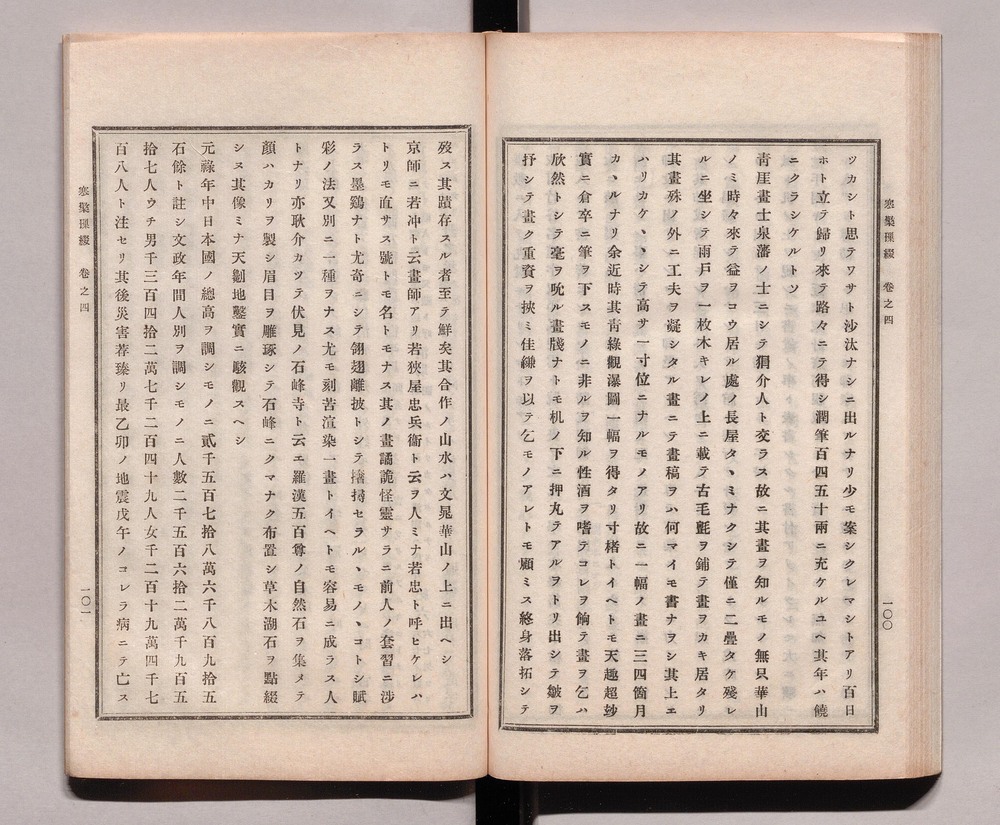 寒檠璅綴　卷之四
一〇〇
ツカシト思テワサト沙汰ナシニ出ルナリ少モ案シクレマシトアリ百日
ホト立テ歸リ來テ路々ニテ得シ潤筆百四五十兩ニ充ケルユヘ其年ハ饒
ニクラシケルトソ
靑厓畫士泉藩ノ士ニシテ狷介人ト交ラス故ニ其畫ヲ知ルモノ無只華山
ノミ時々來テ益ヲコウ居ル處ノ長屋タヽミナクシテ僅ニ二疊タケ殘レ
ルニ坐シテ雨戸ヲ一枚木キレノ上ニ載テ古毛氈ヲ鋪テ畫ヲカキ居タリ
其畫殊ノ外ニ工夫ヲ凝シタル畫ニテ畫稿ヲハ何マイモ書ナヲシ其上エ
ハリカケヽヽシテ高サ一寸位ニナルモノアリ故ニ一幅ノ畫ニ三四箇月
カヽルナリ余近時其靑綠觀瀑圖一幅ヲ得タリ寸楮トイヘトモ天趣超玅
實ニ倉卒ニ筆ヲ下スモノニ非ルヲ知ル性酒ヲ嗜テコレヲ餉テ畫ヲ乞ハ
欣然トシテ毫ヲ吮ル畫牋ナトモ机ノ下ニ押丸テアルヲトリ出シテ皴ヲ
抒シテ畫ク重賚ヲ挾ミ佳縑ヲ以テ乞モノアレトモ顧ミス終身落拓シテ
歿ス其蹟存スル者至テ鮮矣其合作ノ山水ハ文晁華山ノ上ニ出ヘシ
京師ニ若冲ト云畫師アリ若狹屋忠兵衞ト云ヲ人ミナ若忠ト呼ヒケレハ
トリモ直サス號トモ名トモナス其ノ畫譎詭怪靈サラニ前人ノ套習ニ涉
ラス墨鷄ナト尤奇ニシテ翎翅離披トシテ㩆挦セラルヽモノヽコトシ賦
彩ノ法又別ニ一種ヲナス尤モ刻苦渲染一畫トイヘトモ容易ニ成ラス人
トナリ亦耿介カツテ伏見ノ石峰寺ト云エ羅漢五百尊ノ自然石ヲ集メテ
顏ハカリヲ製シ眉目ヲ雕琢シテ石峰ニクマナク布置シ草木湖石ヲ點綴
シヌ其像ミナ天劖地鑿實ニ駭觀スヘシ
元祿年中日本國ノ總高ヲ調シモノニ貳千五百七拾八萬六千八百九拾五
石餘ト註シ文政年間人別ヲ調シモノニ人數二千五百六拾二萬千九百五
拾七人ウチ男千三百四拾二萬七千二百四十九人女千二百十九萬四千七
百八人ト注セリ其後災害荐臻リ最乙卯ノ地震戊午ノコレラ病ニテ亡ス
寒檠璅綴　卷之四
一〇一